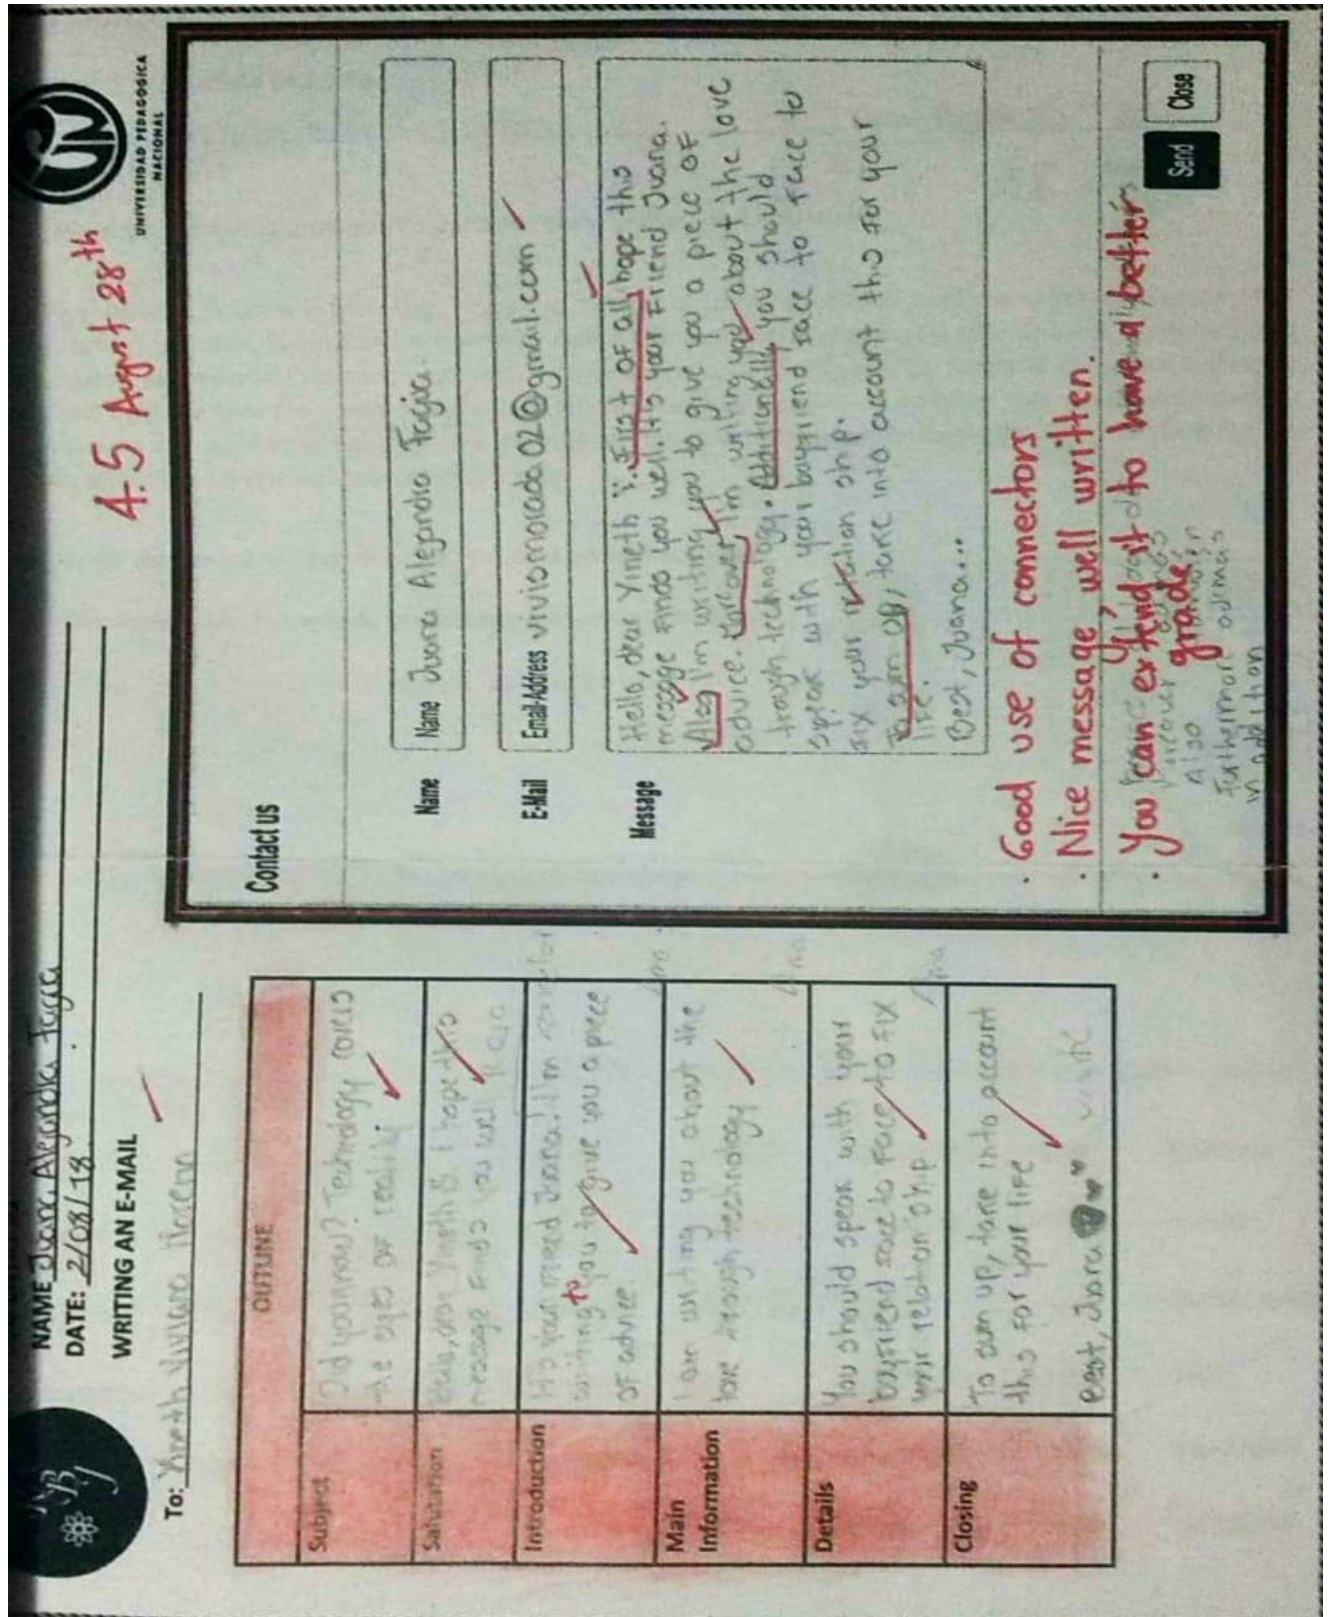 NAME Juana Alejandra Tarja
DATE: 2/08/18.
WRITING AN E-MAIL
To: Yineth Viviana Moreno
4.5 August 28th
UNIVERSIDAD PEDAGOGICA
NACIONAL
OUTLINE
Subject
Did you know? Technology covers
the eyes of reality
Salutation
Hello, dear Yineth 8. I hope this
message finds you well
Introduction
It's your friend Juana! I'm
writing to you to give you a piece
of advice.
Main
Information
I am writing you about the
love through technology
Details
You should speak with your
boyfriend face to face to fix
your relation ship.
Closing
To sum up, take into account
this for your life
Best, Juana
Contact us
Name
Name Juana Alejandra
E-Mail
Email-Address vivismorada02@gmail.com
Message
Hello, dear Yineth V. First of all, hope this
message finds you well. It's your friend Juana.
Also I'm writing you to give you a piece of
advice. I'm writing you about the love
trough technology. Additionally, you should
speak with your boyfriend face to face to
fix your relation ship.
To sum up, take into account this for your
life.
Best, Juana...
· Good use of connectors
· Nice message, well written.
· You can extend it to have a better
grade
Also
Furthermore además
in addition
Send
Close